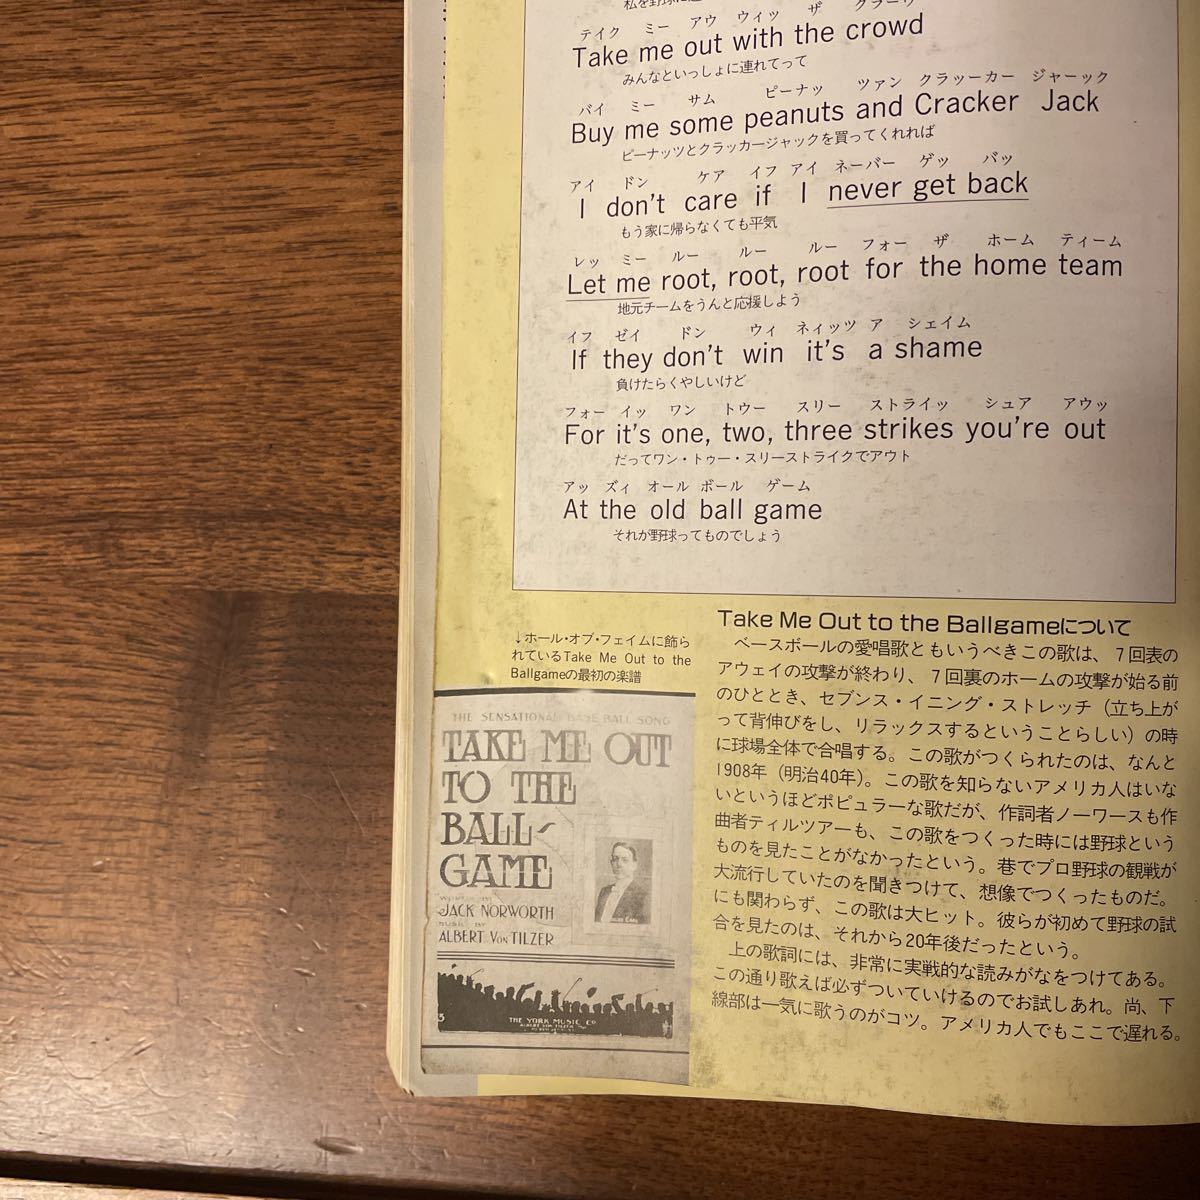 テイク ミー アウ ウィッ ザ クラーウ
Take me out with the crowd
みんなといっしょに連れてって
バイ ミー サム ピーナッ ツァン クラッーカー ジャーック
Buy me some peanuts and Cracker Jack
ピーナッツとクラッカージャックを買ってくれれば
アイ ドン ケア イフ アイ ネーバー ゲッ バッ
I don't care if I never get back
もう家に帰らなくても平気
レッ ミー ルー ルー ルー フォー ザ ホーム ティーム
Let me root, root, root for the home team
地元チームをうんと応援しよう
イフ ゼイ ドン ウィ ネィッツ ア シェイム
If they don't win it's a shame
負けたらくやしいけど
フォー イッ ワン トゥー スリー ストライッ シュア アウッ
For it's one, two, three strikes you're out
だってワン・トゥー・スリーストライクでアウト
アッ ズィ オール ボール ゲーム
At the old ball game
それが野球ってものでしょう
↓ホール・オブ・フェイムに飾ら
れているTake Me Out to the
Ballgameの最初の楽譜
THE SENSATIONAL BASE BALL SONG
TAKE ME OUT
TO THE
BALL
GAME
JACK NORWORTH
MUSIC BY
ALBERT VON TILZER
THE YORK MUSIC CO
ALBERT VON TILZER
Take Me Out to the Ballgameについて
ベースボールの愛唱歌ともいうべきこの歌は、7回表の
アウェイの攻撃が終わり、7回裏のホームの攻撃が始る前
のひととき、セブンス・イニング・ストレッチ（立ち上が
って背伸びをし、リラックスするということらしい）の時
に球場全体で合唱する。この歌がつくられたのは、なんと
1908年（明治40年）。この歌を知らないアメリカ人はいな
いというほどポピュラーな歌だが、作詞者ノーワースも作
曲者ティルツアーも、この歌をつくった時には野球という
ものを見たことがなかったという。巷でプロ野球の観戦が
大流行していたのを聞きつけて、想像でつくったものだ。
にも関わらず、この歌は大ヒット。彼らが初めて野球の試
合を見たのは、それから20年後だったという。
上の歌詞には、非常に実戦的な読みがなをつけてある。
この通り歌えば必ずついていけるのでお試しあれ。尚、下
線部は一気に歌うのがコツ。アメリカ人でもここで遅れる。